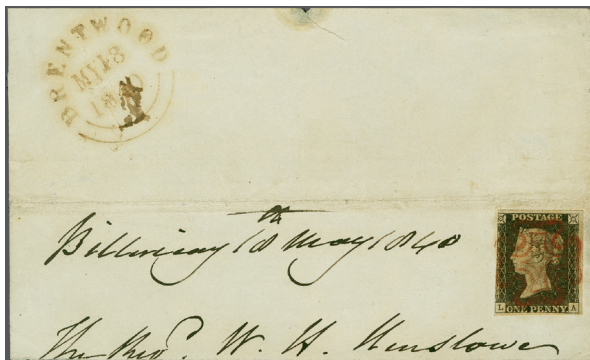 BRENTWOOD
MY18
1840
Billericay 18th May 1840
POSTAGE
L A
ONE PENNY
The Revd. W. H. Henslowe